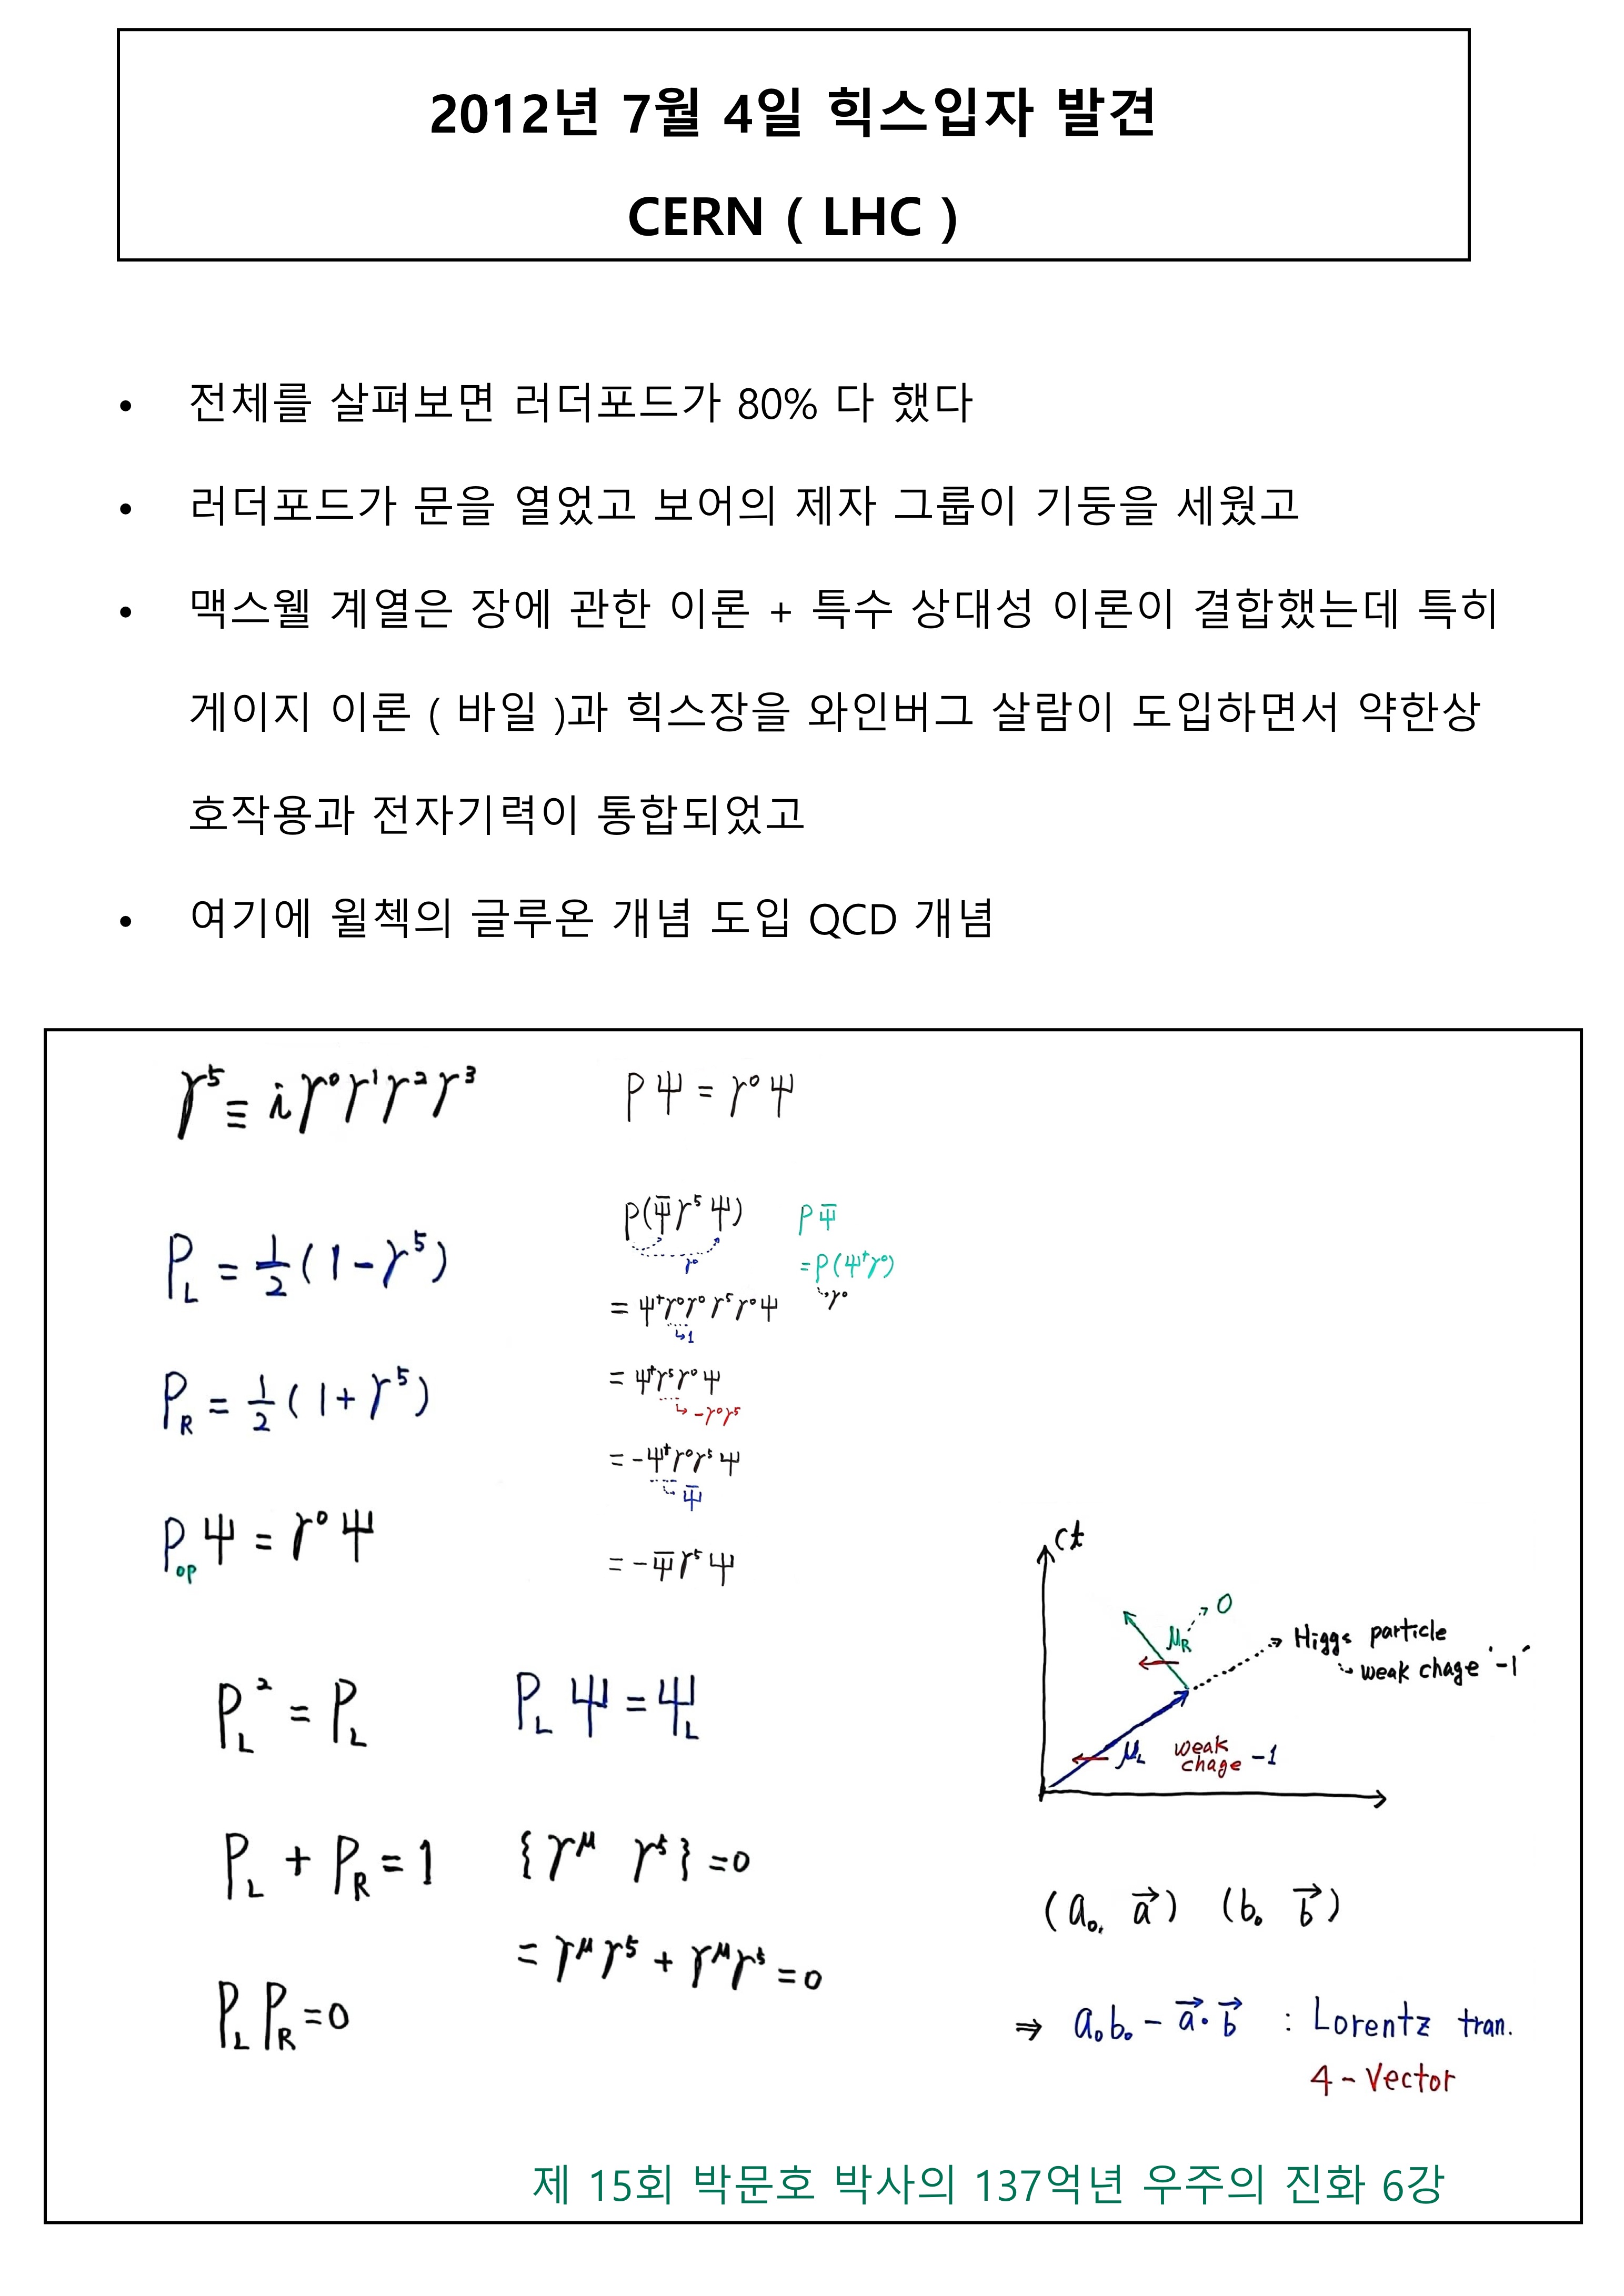 2012년 7월 4일 힉스입자 발견
CERN ( LHC )
• 전체를 살펴보면 러더포드가 80% 다 했다
• 러더포드가 문을 열었고 보어의 제자 그룹이 기둥을 세웠고
• 맥스웰 계열은 장에 관한 이론 + 특수 상대성 이론이 결합했는데 특히
게이지 이론 ( 바일 )과 힉스장을 와인버그 살람이 도입하면서 약한상
호작용과 전자기력이 통합되었고
• 여기에 윌첵의 글루온 개념 도입 QCD 개념
γ⁵ ≡ iγ⁰γ¹γ²γ³
P_L = 1/2 (1 - γ⁵)
P_R = 1/2 (1 + γ⁵)
P_op Ψ = γ⁰Ψ
PΨ = γ⁰Ψ
P(Ψ̄γ⁵Ψ)
γ⁰
= Ψ†γ⁰γ⁰γ⁵γ⁰Ψ
↳1
= Ψ†γ⁵γ⁰Ψ
↳ -γ⁰γ⁵
= -Ψ†γ⁰γ⁵Ψ
↳ Ψ̄
= -Ψ̄γ⁵Ψ
PΨ̄
= P(Ψ†γ⁰)
↳γ⁰
P_L² = P_L
P_L Ψ = Ψ_L
P_L + P_R = 1
{γ^μ γ⁵} = 0
= γ^μγ⁵ + γ^μγ⁵ = 0
P_L P_R = 0
ct
0
μ_R
Higgs particle
↳ weak chage '-1'
μ_L weak chage -1
(a₀, a⃗) (b₀ b⃗)
⇒ a₀b₀ - a⃗·b⃗ : Lorentz tran.
4-Vector
제 15회 박문호 박사의 137억년 우주의 진화 6강